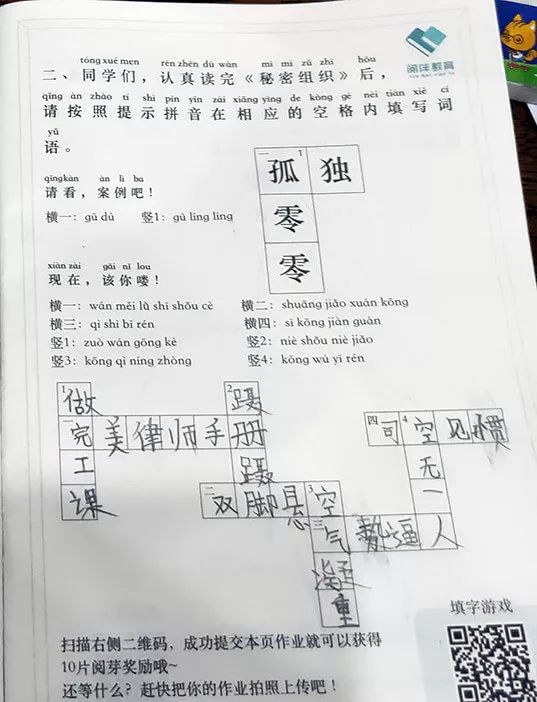 阅伴教育
tóng xué men rèn zhēn dú wán mì mì zǔ zhī hòu
二、同学们，认真读完《秘密组织》后，
qǐng àn zhào tí shì pīn yīn zài xiāng yìng de kòng gé nèi tián xiě cí
请按照提示拼音在相应的空格内填写词
yǔ
语。
qǐng kàn àn lì ba
请看，案例吧！
横一：gū dú 竖1：gū líng líng
一 1 孤 独
零
零
xiàn zài gāi nǐ lou
现在，该你喽！
横一：wán měi lǜ shī shǒu cè 横二：shuāng jiǎo xuán kōng
横三：qì shì bī rén 横四：sī kōng jiàn guàn
竖1：zuò wán gōng kè 竖2：niè shǒu niè jiǎo
竖3：kōng qì níng zhòng 竖4：kōng wú yī rén
1 做 2 蹑
完 美 律 师 手 册 四 司 4 空 见 惯
工 蹑 无
课 二 双 脚 悬 3 空 一
三 气 势 逼 人
凝
重
填字游戏
扫描右侧二维码，成功提交本页作业就可以获得
10片阅芽奖励哦~
还等什么？赶快把你的作业拍照上传吧！